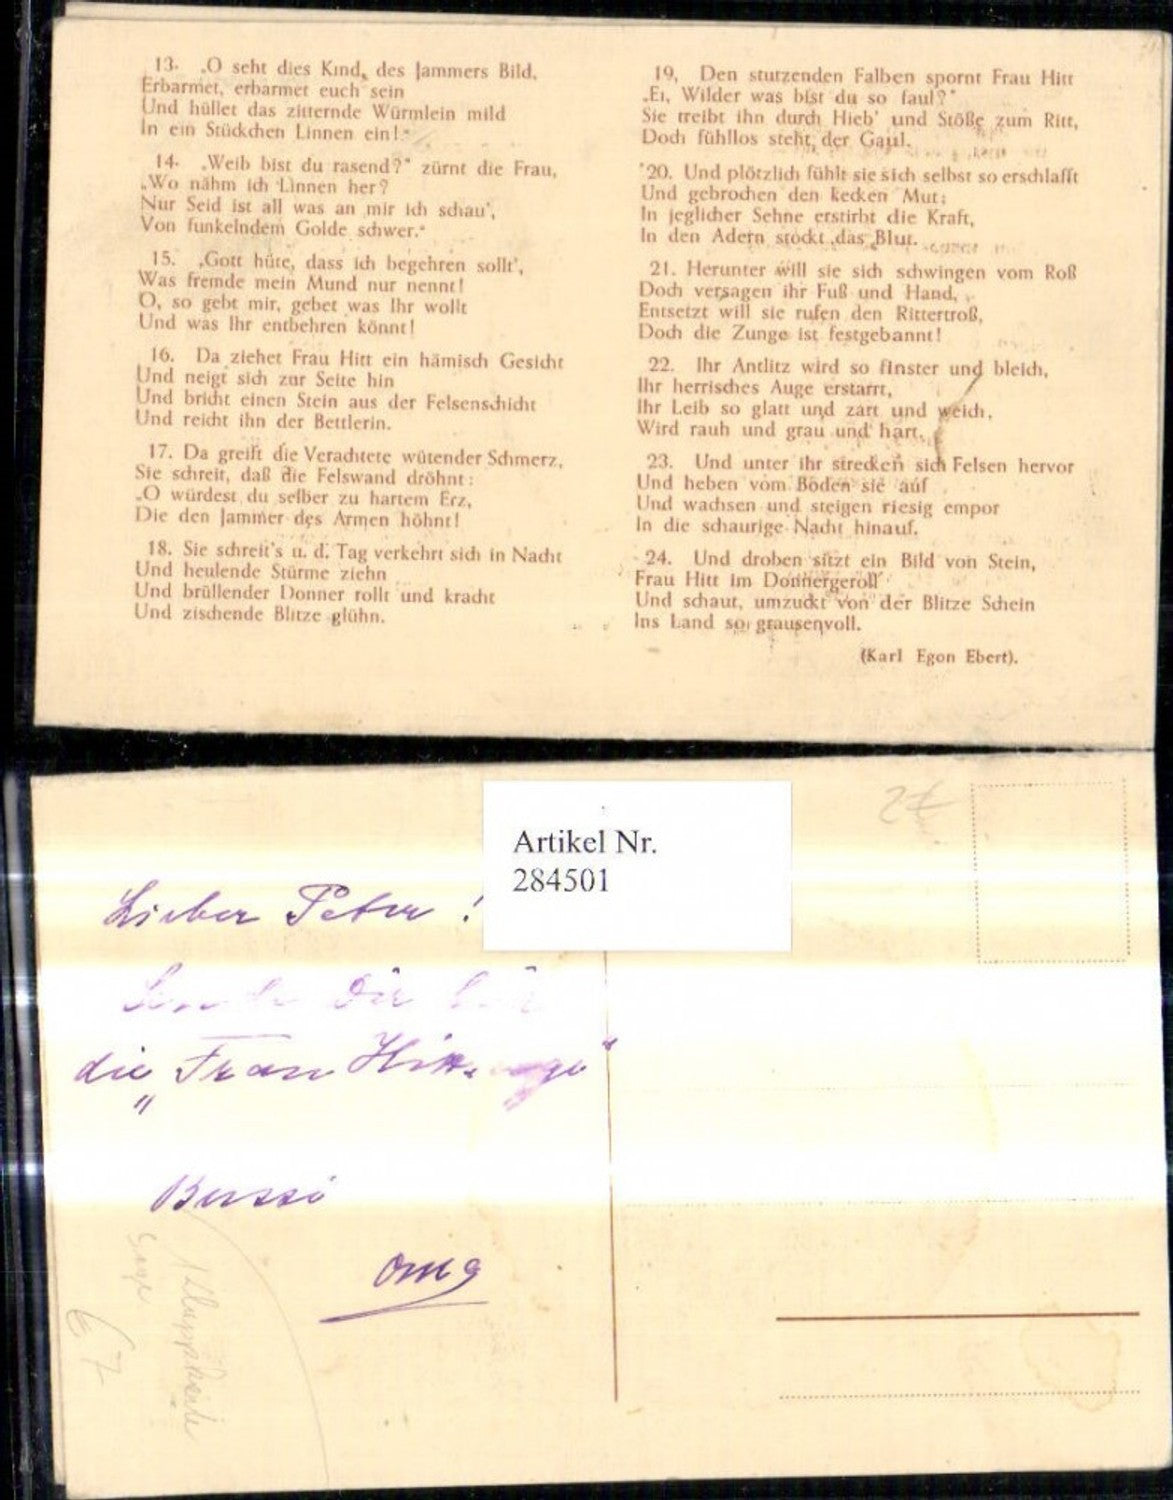 13. „O seht dies Kind, des Jammers Bild,
Erbarmet, erbarmet euch sein
Und hüllet das zitternde Würmlein mild
In ein Stückchen Linnen ein!“
14. „Weib bist du rasend?“ zürnt die Frau,
„Wo nähm ich Linnen her?
Nur Seid ist all was an mir ich schau',
Von funkelndem Golde schwer.“
15. „Gott hüte, dass ich begehren sollt',
Was fremde mein Mund nur nennt!
O, so gebt mir, gebet was Ihr wollt
Und was Ihr entbehren könnt!
16. Da ziehet Frau Hitt ein hämisch Gesicht
Und neigt sich zur Seite hin
Und bricht einen Stein aus der Felsenschicht
Und reicht ihn der Bettlerin.
17. Da greift die Verachtete wütender Schmerz,
Sie schreit, daß die Felswand dröhnt:
„O würdest du selber zu hartem Erz,
Die den Jammer des Armen höhnt!
18. Sie schreit's u. d. Tag verkehrt sich in Nacht
Und heulende Stürme ziehn
Und brüllender Donner rollt und kracht
Und zischende Blitze glühn.
19. Den stutzenden Falben spornt Frau Hitt
„Ei, Wilder was bist du so faul?“
Sie treibt ihn durch Hieb' und Stöße zum Ritt,
Doch fühllos steht der Gaul.
20. Und plötzlich fühlt sie sich selbst so erschlafft
Und gebrochen den kecken Mut;
In jeglicher Sehne erstirbt die Kraft,
In den Adern stockt das Blut.
21. Herunter will sie sich schwingen vom Roß
Doch versagen ihr Fuß und Hand,
Entsetzt will sie rufen den Rittertroß,
Doch die Zunge ist festgebannt!
22. Ihr Antlitz wird so finster und bleich,
Ihr herrisches Auge erstarrt,
Ihr Leib so glatt und zart und weich,
Wird rauh und grau und hart.
23. Und unter ihr strecken sich Felsen hervor
Und heben vom Boden sie auf
Und wachsen und steigen riesig empor
In die schaurige Nacht hinauf.
24. Und droben sitzt ein Bild von Stein,
Frau Hitt im Donnergeroll
Und schaut, umzuckt von der Blitze Schein
Ins Land so grausenvoll.
(Karl Egon Ebert).
Artikel Nr.
284501
Lieber Peter!
Sende Dir
die „Frau Hitt
Bussi
Oma